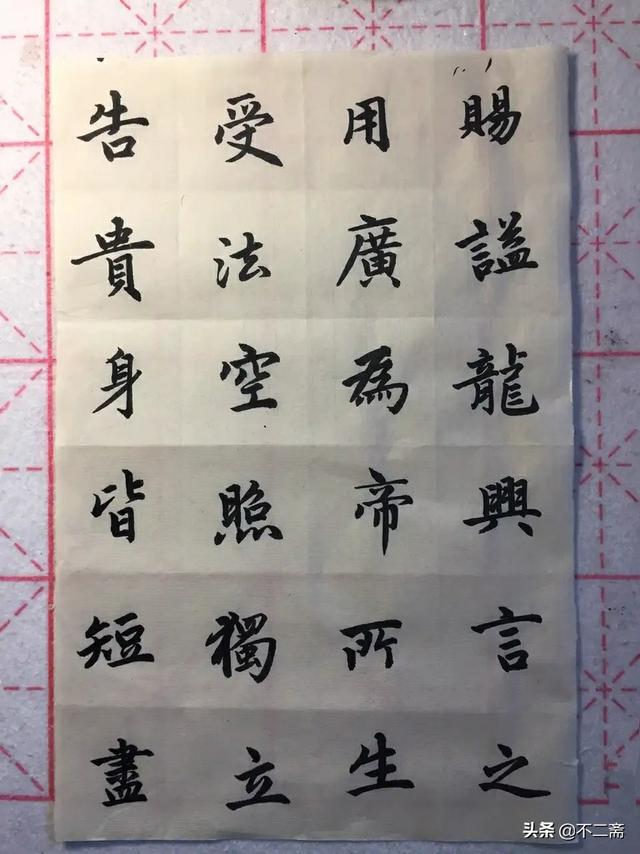 賜謚龍興言之
用廣為帝所生
受法空照獨立
告貴身皆短盡
头条 @不二斋